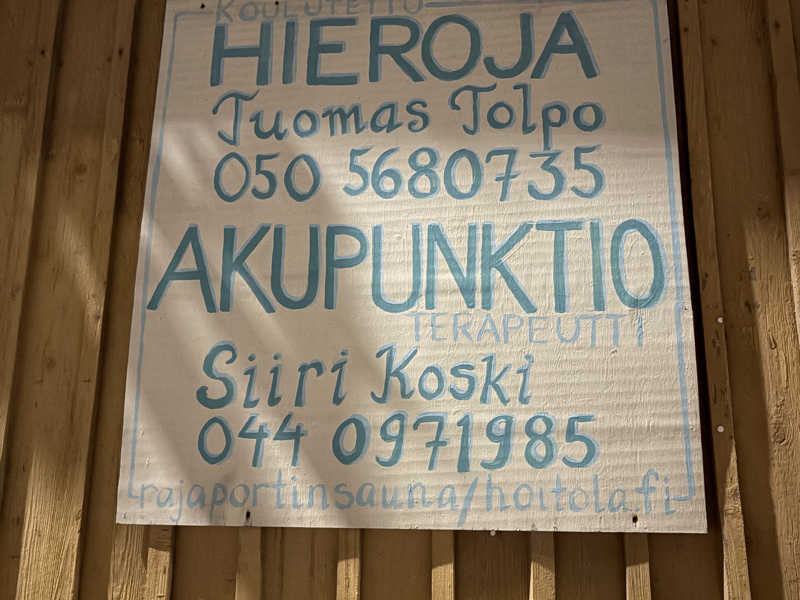 KOULUTETTU
HIEROJA
Tuomas Tolpo
050 5680735
AKUPUNKTIO
TERAPEUTTI
Siiri Koski
044 0971985
rajaportinsauna/hoitola.fi